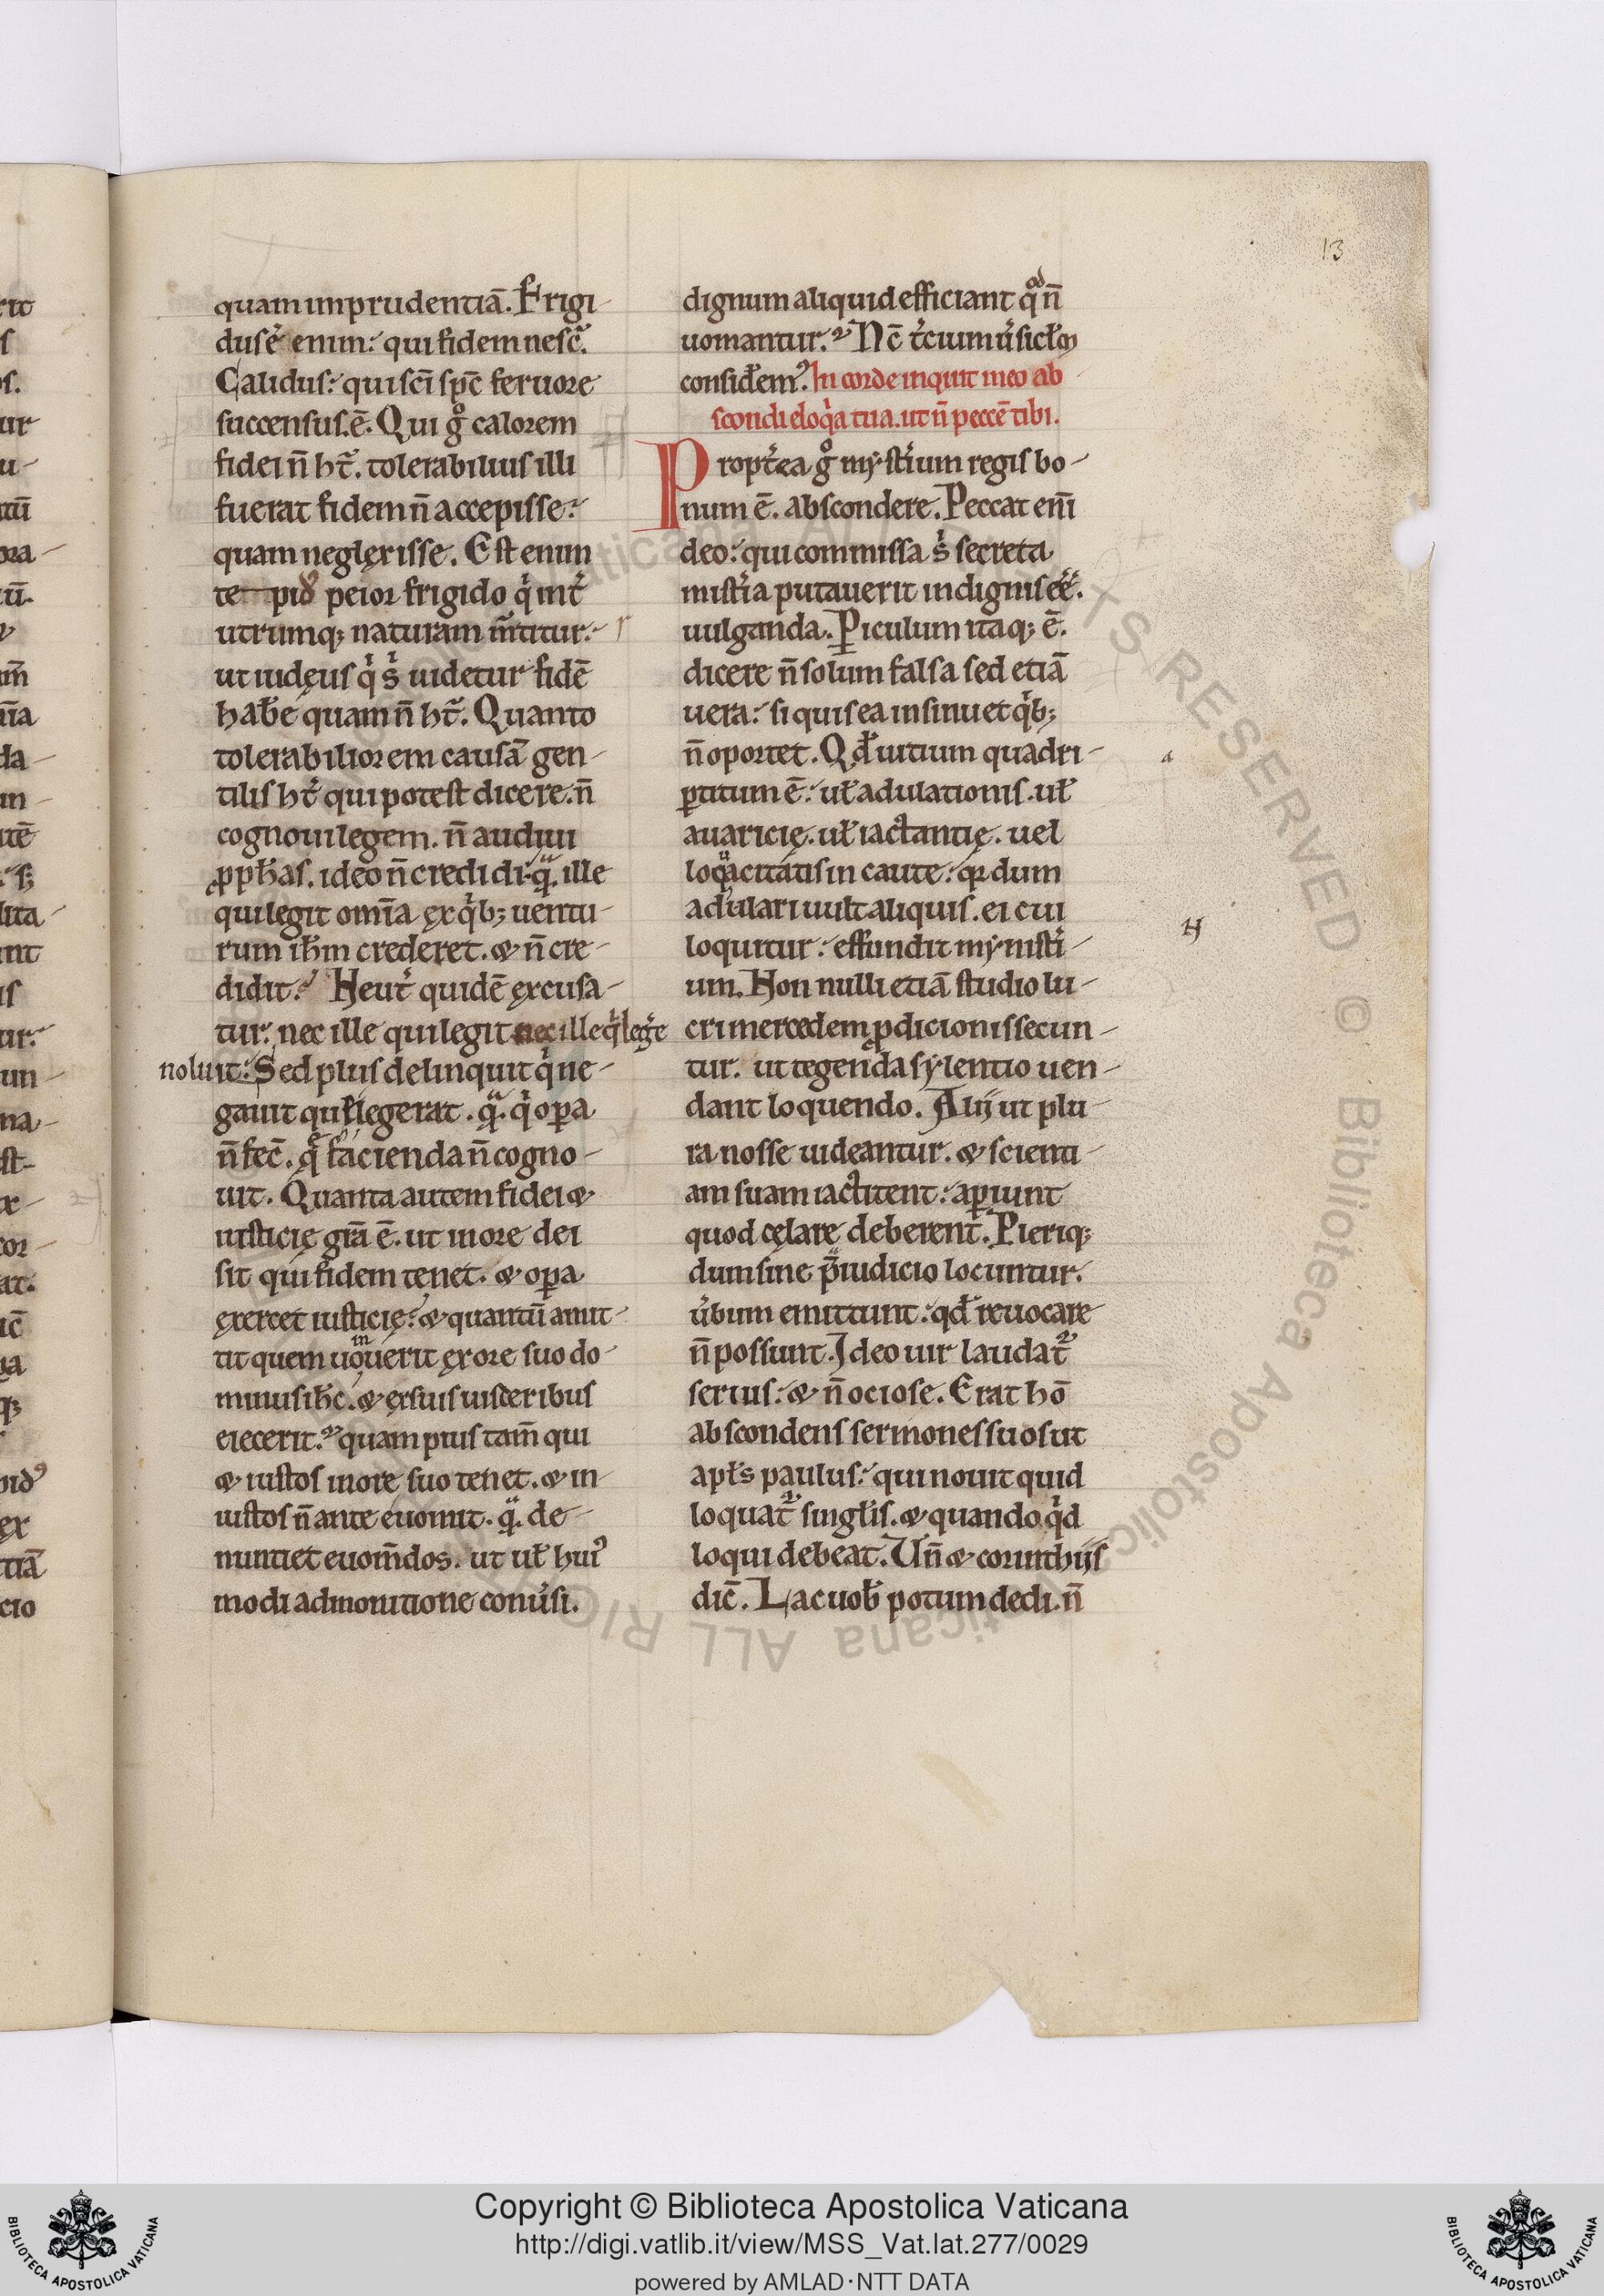 13
quam imprudentiā. Frigi-
dus ē enim: qui fidem nesc̄.
Calidus: qui sc̄i sp̄c feruore
succensus. ē. Qui gͦ calorem
fidei n̄ ht̄. tolerabilius illi
fuerat fidem n̄ accepisse:
quam neglęxisse. Est enim
te pidꝰ peior frigido qͥ int̾
utrumq; naturam m̄titur:
ut iudęus qͥ sͥ uidetur fidē
hab̄e quam n̄ ht̄. Quanto
tolerabiliorem causā gen-
tilis ht̄ qui potest dicere. n̄
cognoui legem. n̄ audiui
ꝓph̄as. ideo n̄ credidi. qͣ. ille
qui legit om̄ia ęx qͥb; uentu-
rum ih̄m crederet. & n̄ cre-
didit: Neut̾ quidē ęxcusa-
tur. nec ille qui legit nec ille qͥ leg̾e
noluit: Sed plus delinquit qͥ ne-
gauit qui legerat. qͣ. qͥ oꝑa
n̄ fec̄. qͤ facienda n̄ cogno-
uit. Quanta autem fidei &
iusticię gr̄a ē. ut in ore dei
sit qui fidem tenet. & oꝑa
ęxercet iusticię: & quantū amit-
tit quem uomuerit ęx ore suo do-
minus ih̄c. & ęx suis uisceribus
eiecerit: quam pius tam̄ qui
& iustos in ore suo tenet. & in-
iustos n̄ ante euomit. qͣ. de-
nuntiet euom̄dos. ut uł huiꝰ
modi admonitione conu̾si.
dignum aliquid efficiant qͦd n̄
uomantur: Nc̄ t̾cium u̾sicłm
consid̾emꝰ. In corde inquit meo ab
scondi eloqͥa tua. ut n̄ peccē tibi.
Propt̾ea gͦ my·st̾ium regis bo-
num ē. abscondere. Peccat eni̅
deo: qui commissa sͥ secreta
mist̾ia putauerit indignis eē̾.
uulganda. Ꝑiculum itaq; ē.
dicere n̄ solum falsa sed etiā
uera: si quis ea insinuet qͥb;
n̄ oportet. Qd̄ uitium quadri-
ꝑtitum ē: uł adulationis. uł
auaricię. uł iactantię. uel
loquacitatis in caute: qꝛ dum
adulari uult aliquis. ei cui
loquitur: effundit my·nist̾i-
um. Non nulli etiā studio lu-
cri mercedem ꝓdicionis secun-
tur. ut tegenda sylentio uen-
dant loquendo. Alij ut plu-
ra nosse uideantur. & scienti-
am suam iactitent: aꝑiunt
quod cęlare deberent. Plerìq;
dum sine p̄iudicio locuntur.
u̾bum emittunt: qd̄ reuocare
n̄ possunt. Ideo uir laudat᷑
serius: & n̄ ociose. Erat hō
abscondens sermones suos ut
apłs paulus: qui nouit quid
loquat᷑ singłis. & quando qͥd
loqui debeat. Un̄ & corinthijs
dic̄. Lac uob̄ potum dedi. n̄
Copyright © Biblioteca Apostolica Vaticana
http://digi.vatlib.it/view/MSS_Vat.lat.277/0029
powered by AMLAD·NTT DATA